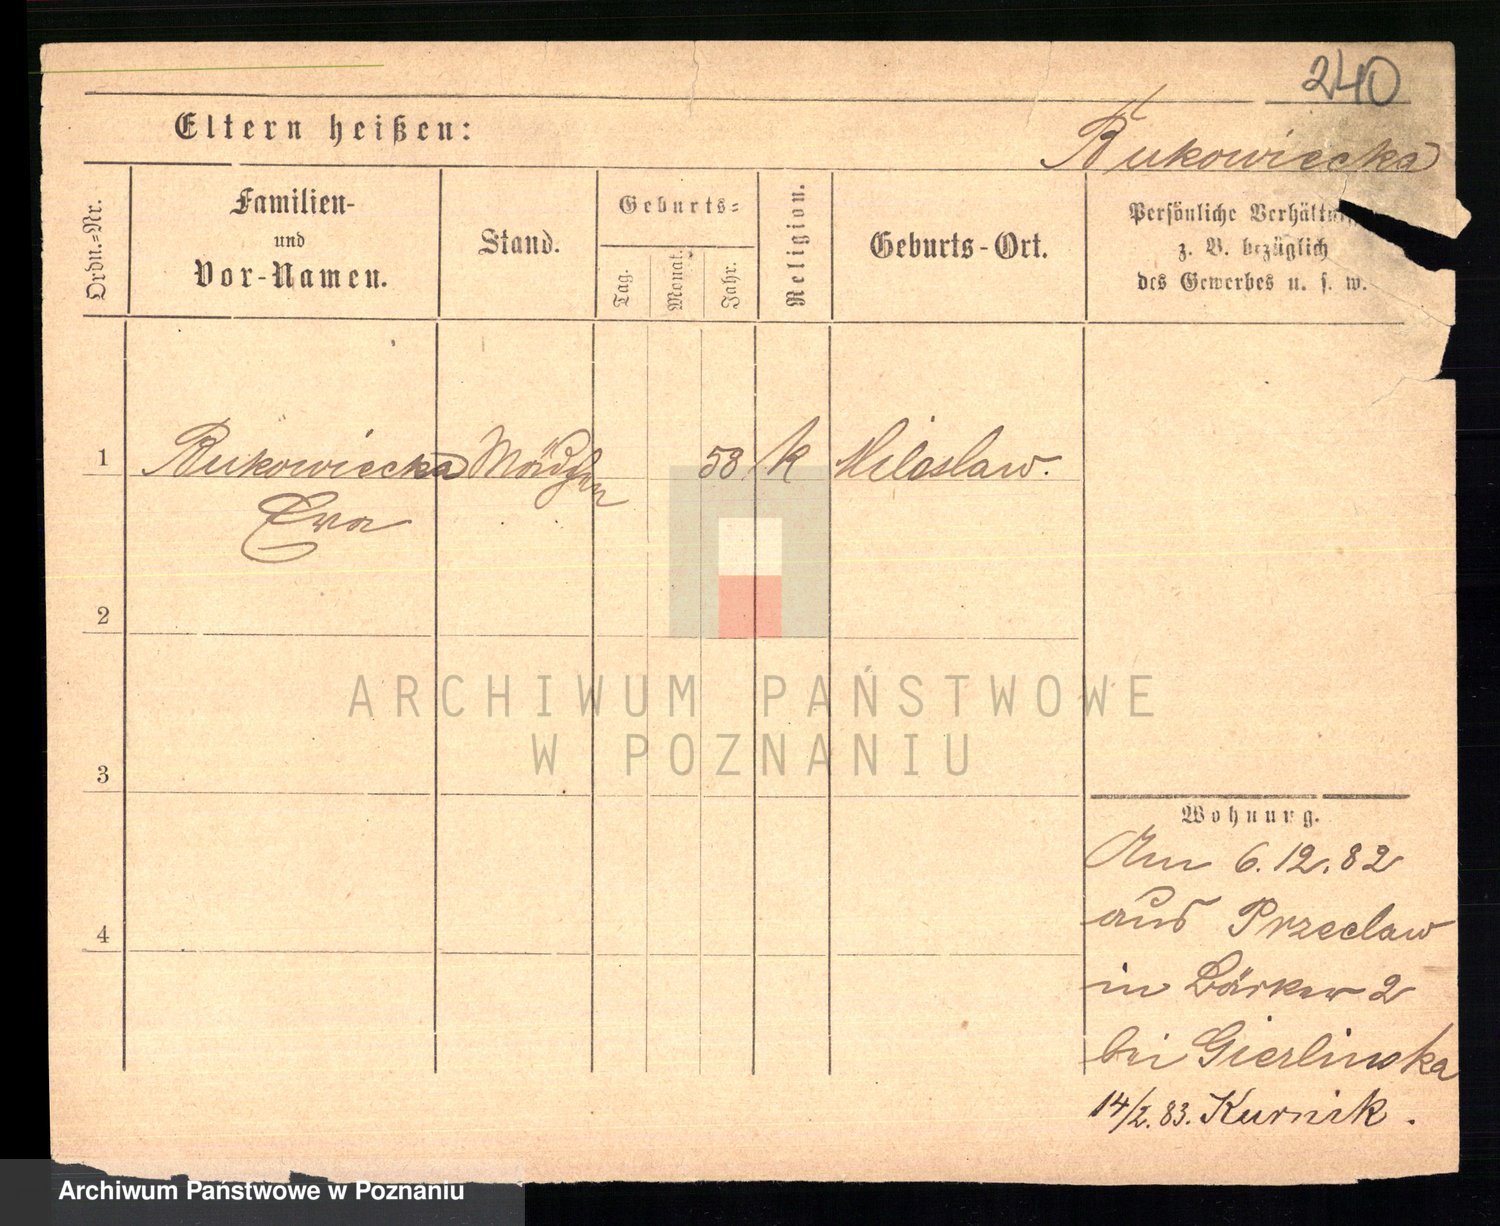 240
Eltern heißen:
Bukowiecka
Ordn.-Nr.
Familien-
und
Vor-Namen.
Stand.
Geburts-
Tag.
Monat.
Jahr.
Religion.
Geburts-Ort.
Persönliche
z. B. bezüglich
des Gewerbes u. s. w.
1
Bukowiecka
Eva
Mädchen
58
k
Miloslaw.
2
3
4
ARCHIWUM PAŃSTWOWE
W POZNANIU
Wohnung.
Am 6.12.82
aus Przeclaw
in 2
bei Gierlinska
14/2.83. Kurnik.
Archiwum Państwowe w Poznaniu